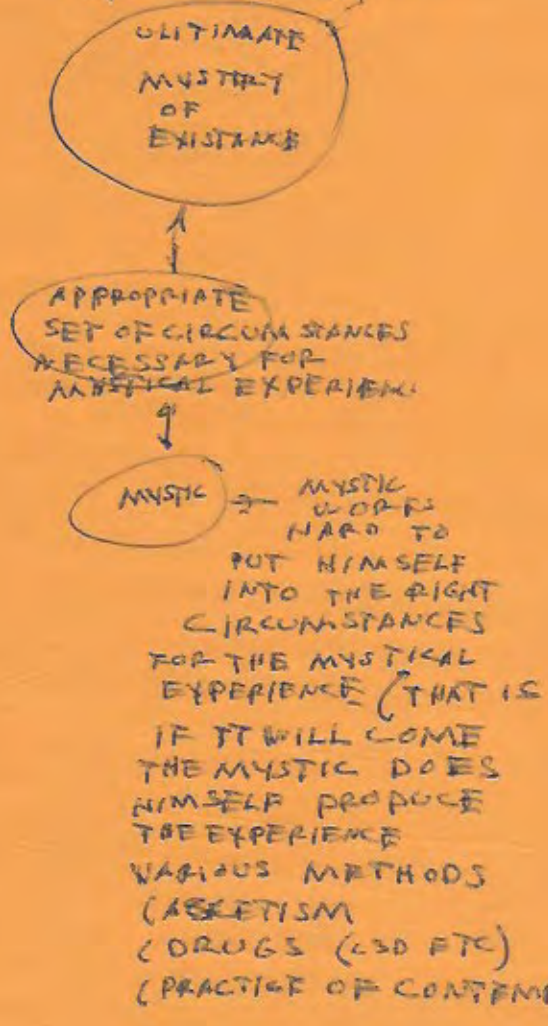 ULITIMATE
MYSTERY
OF
EXISTANCE
APPROPRIATE
SET OF CIRCUMSTANCES
NECESSARY FOR
MYSTICAL EXPERIENC
MYSTIC
MYSTIC
WORKS
HARD TO
PUT HIMSELF
INTO THE RIGHT
CIRCUMSTANCES
FOR THE MYSTICAL
EXPERIENCE (THAT IS
IF IT WILL COME
THE MYSTIC DOES
HIMSELF PRODUCE
THE EXPERIENCE
VARIOUS METHODS
(ASCETISM
(DRUGS (LSD ETC)
(PRACTICE OF CONTEM